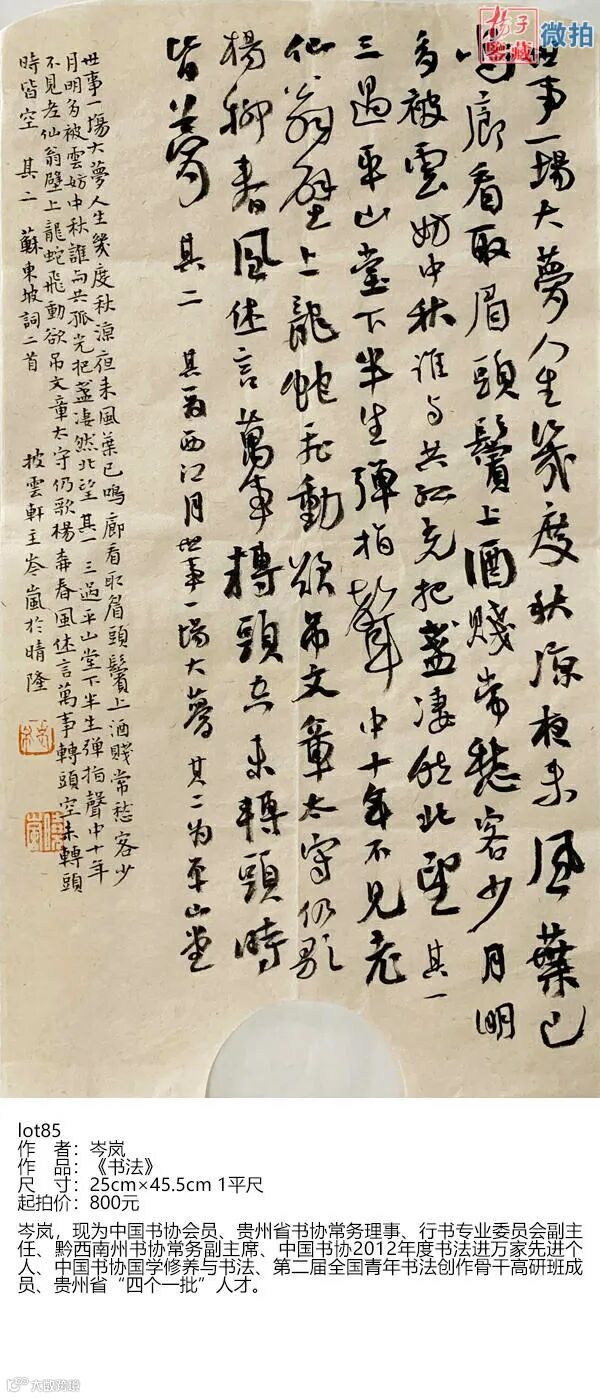 扬子
收藏
微拍
世事一場大夢人生幾度秋凉夜来風葉已
鳴廊看取眉頭鬢上酒賤常愁客少月明
多被雲妨中秋誰与共孤光把盞凄然北望其一
三過平山堂下半生彈指聲中十年不見老
仙翁壁上龍蛇飛動欲吊文章太守仍歌
楊柳春風休言萬事轉頭空未轉頭時
皆夢 其二 其一為西江月世事一場大夢 其二为平山堂
世事一場大夢人生幾度秋凉夜来風葉已鳴廊看取眉頭鬢上酒賤常愁客少
月明多被雲妨中秋誰与共孤光把盞凄然北望其一三過平山堂下半生弹指聲中十年
不見老仙翁壁上龍蛇飛動欲吊文章太守仍歌楊春風休言萬事轉頭空未轉頭
時皆空 其二 蘇東坡詞二首
披雲軒主岑嵐於晴隆
lot85
作 者：岑岚
作 品：《书法》
尺 寸：25cm×45.5cm 1平尺
起拍价：800元
岑岚，现为中国书协会员、贵州省书协常务理事、行书专业委员会副主
任、黔西南州书协常务副主席、中国书协2012年度书法进万家先进个
人、中国书协国学修养与书法、第二届全国青年书法创作骨干高研班成
员、贵州省“四个一批”人才。
大数跨境